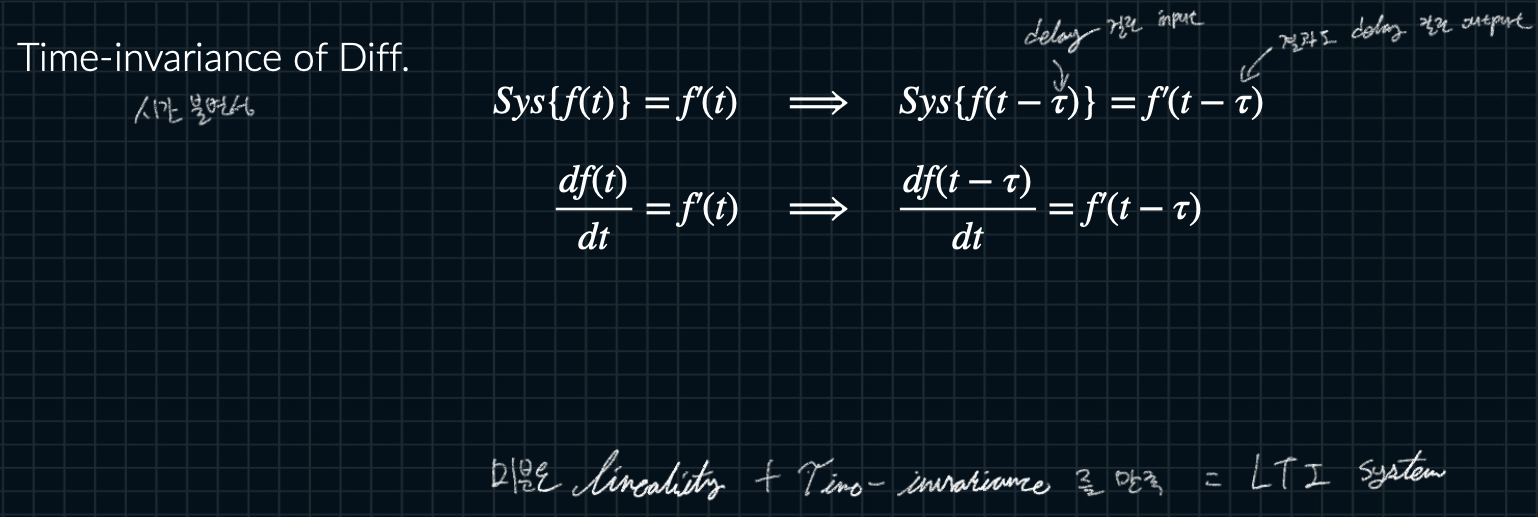 Time-invariance of Diff.
시간 불변성
delay 걸린 input
결과도 delay 걸린 output
Sys{f(t)} = f′(t) ⟹ Sys{f(t − τ)} = f′(t − τ)
df(t)/dt = f′(t) ⟹ df(t − τ)/dt = f′(t − τ)
미분도 linearity + Time-invariance 를 만족 = LTI system